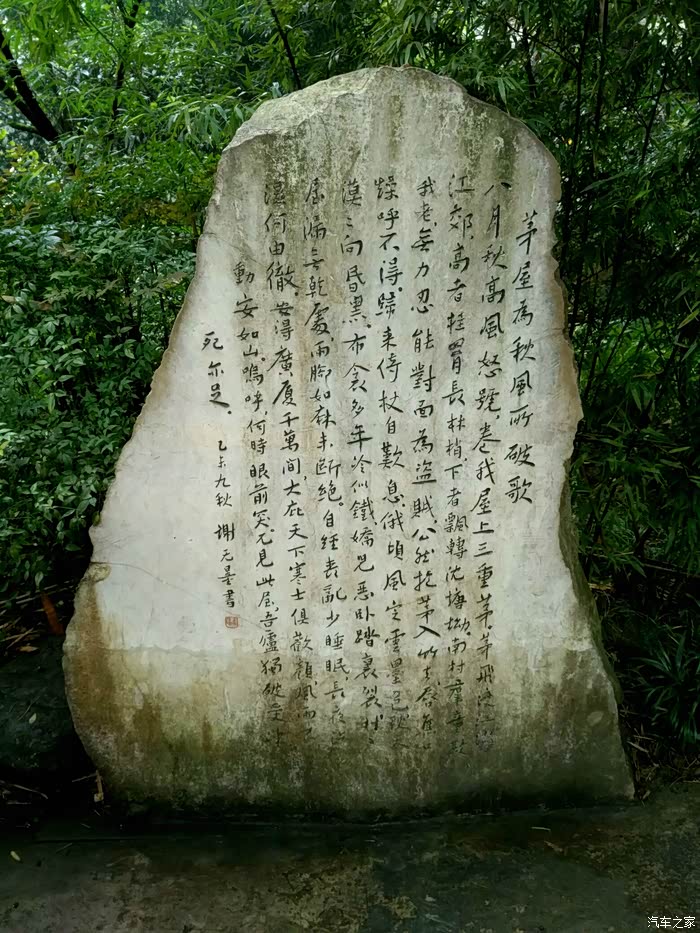 茅屋為秋風所破歌
八月秋高風怒號,卷我屋上三重茅,茅飛渡江灑
江郊,高者挂罥長林梢,下者飄轉沈塘坳,南村群童欺
我老無力,忍能對面為盜賊,公然抱茅入竹去,唇焦口
燥呼不得,歸來倚杖自歎息,俄頃風定雲墨色,秋天
漠漠向昏黑,布衾多年冷似鐵,嬌兒惡卧踏裏裂,床
屋漏無乾處,雨腳如麻未斷絕。自經喪亂少睡眠,長夜沾
濕何由徹。安得廣厦千萬間,大庇天下寒士俱歡顏,風雨不
動安如山。嗚呼,何時眼前突兀見此屋,吾廬獨破受凍
死亦足。
乙未九秋 謝无量書
汽车之家